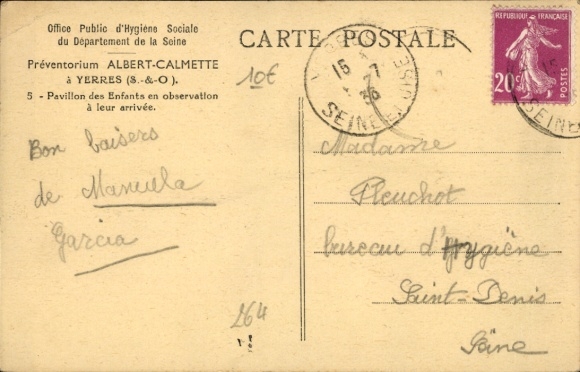 Office Public d'Hygiène Sociale
du Département de la Seine
Préventorium ALBERT-CALMETTE
à YERRES (S.-&-O).
5 - Pavillon des Enfants en observation
à leur arrivée.
CARTE POSTALE
10€
15 7
36
SEINE ET OISE
REPUBLIQUE FRANÇAISE
20c
POSTES
15
SEINE
Bon baisers
de Manuela
Garcia
264
Madame
Pleuchot
bureau d'Hygiène
Saint-Denis
Seine